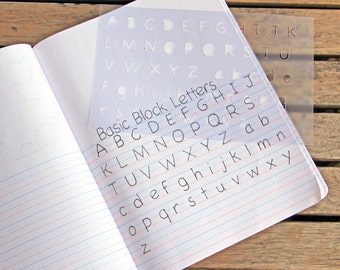 A B C D E F G H I J K
L M N O P Q R S T U
Basic Block Letters
A B C D E F G H I J
K L M N O P Q R S
T U V W X Y Z a b
c d e f g h i j k l m n
o p q r s t u v w x y
z